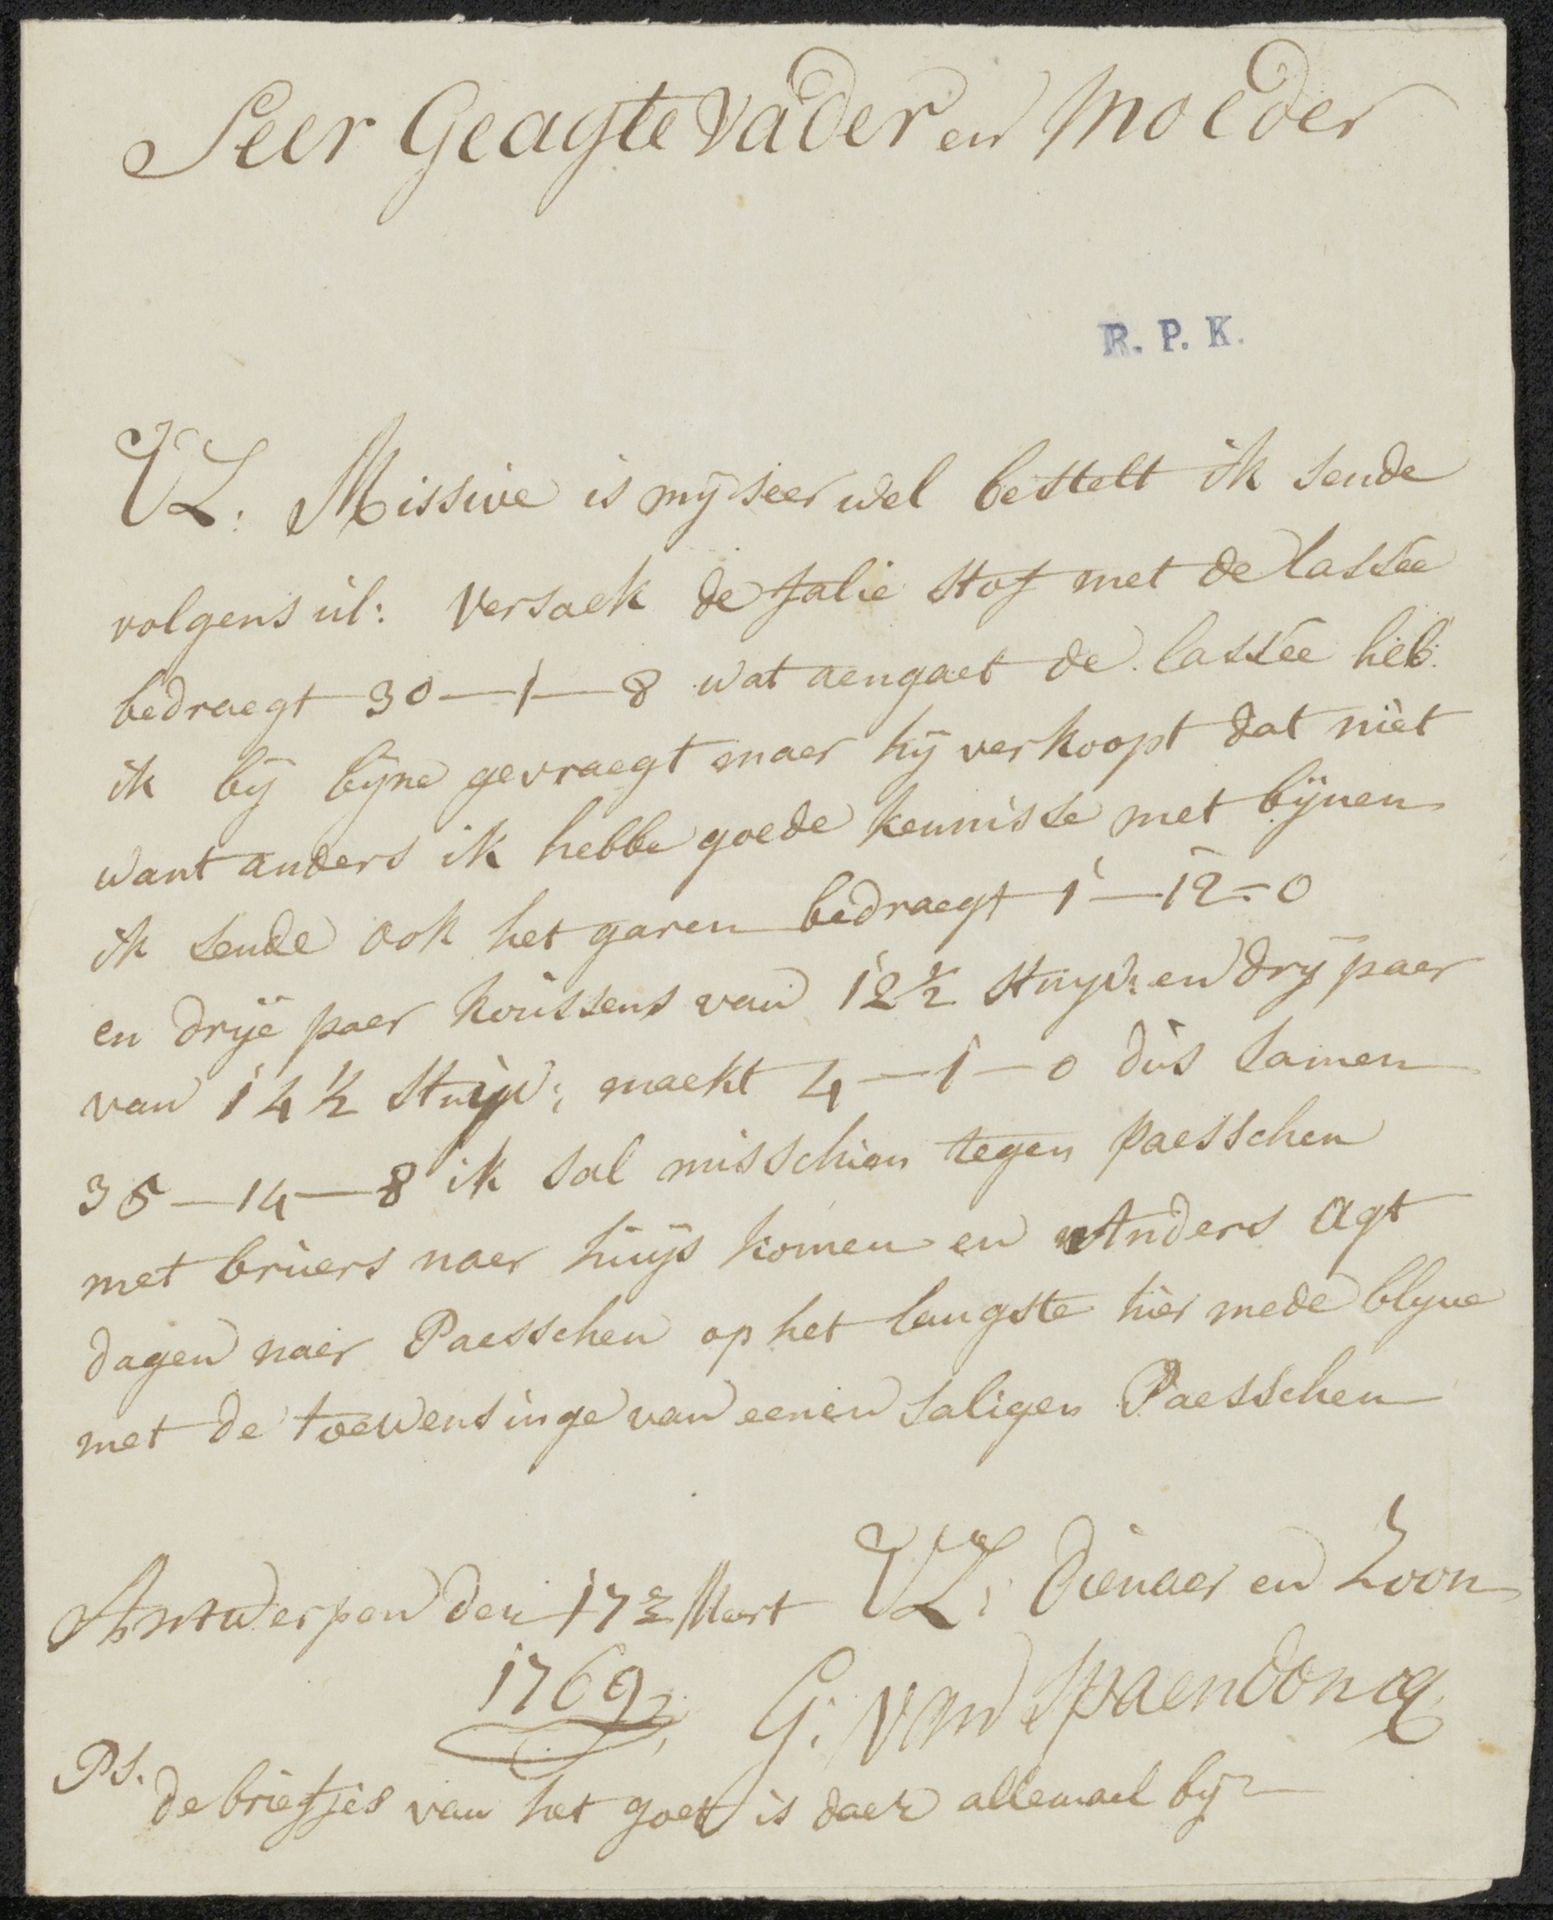 Seer Geagte vader en Moeder
R. P. K.
UL: Missive is mij seer wel bestelt ik sende
volgens ul: versoek de falie stof met de lassee
bedraegt 30—1—8 wat aengaet de lassee heb
ik bij bijne gevraegt maer hij verkoopt dat niet
want anders ik hebbe goede kennisse met bijnen
ik sende ook het garen bedraegt 1—12—0
en drije paer koussens van 12½ stuyv: en drij paer
van 14½ stuyv: maekt 4—1—0 dus samen
35—14—8 ik sal misschien tegen paesschen
met bruers naer huijs komen en Anders agt
dagen naer Paesschen op het langste hier mede blyve
met de toewensinge van eenen saligen Paesschen
Antwerpen den 17 Mert UL: dienaer en Zoon
1769 G: van Spaendoncq
Ps.
de briefjes van het goet is daer allemael bij